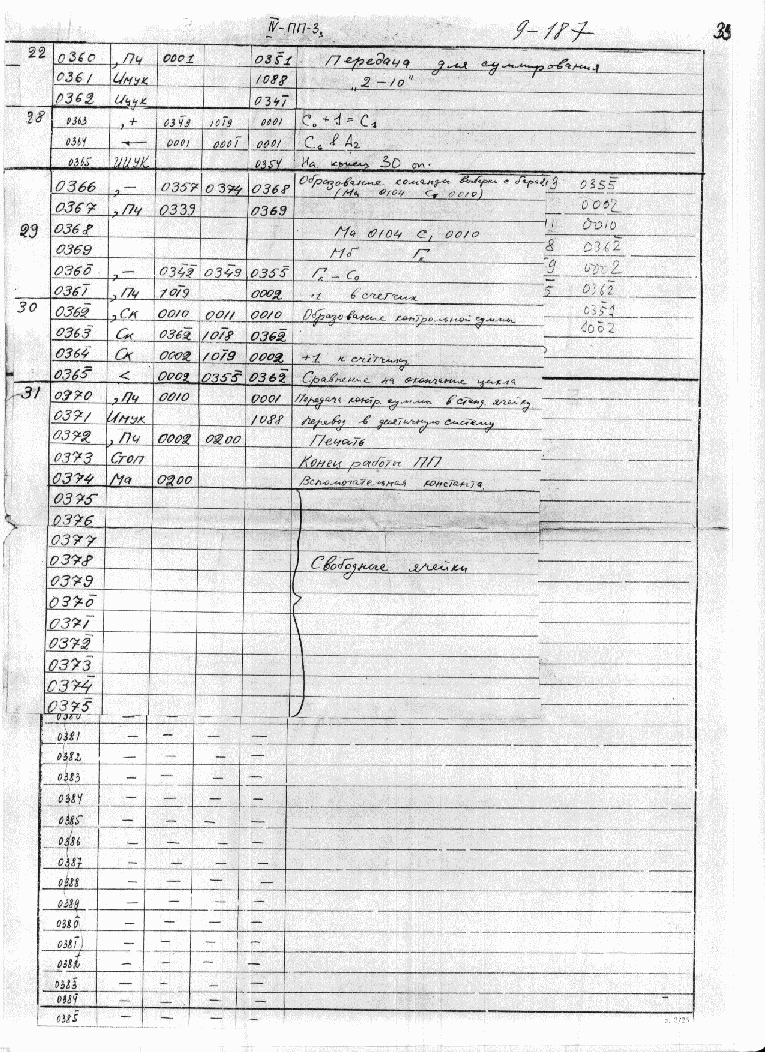 IV-ПП-3₃ 9-187 33
22 0360 ,Пч 0001 035̄1 Передача для суммирования
0361 Имук 1088 „2-10"
0362 Ицук 0341̄
28 0363 ,+ 034̄9 101̄9 0001 C₀+1=C₁
0364 ← 0001 0001̄ 0001 C₀ в A₂
0365 ИЦУК 0354 На конец 30 оп.
0366 ,— 0357 0374 0368 Образование команды выборки с бараб. 9 0355̄
(Ма 0104 C₁ 0010)
0367 ,Пч 0339 0369 0002
29 0368 Ма 0104 C₁ 0010 11 0010
0369 Мб 8 0362̄
0360̄ ,— 0342̄ 034̄9 0355̄ – C₀ 9 0002
0361̄ ,Пч 101̄9 0002 "1" в счетчик 5̄ 0362̄
30 0362̄ ,Ск 0010 0011 0010 Образование контрольной суммы 035̄1
0363̄ Ск 0362̄ 101̄8 0362̄ 1002
0364̄ Ск 0002 101̄9 0002 +1 к счётчику
0365̄ < 0002 0355̄ 0362̄ Сравнение на окончание цикла
31 0370 ,Пч 0010 0001 Передача контр. суммы в станд. ячейку
0371 Имук 1088 Перевод в десятичную систему
0372 ,Пч 0002 0200 Печать
0373 Стоп Конец работы ПП
0374 Ма 0200 Вспомогательная константа
0375
0376
0377
0378 Свободные ячейки
0379
0370̄
0371̄
0372̄
0373̄
0374̄
0375̄
0380
0381 — — — —
0382 — — — —
0383 — — — —
0384 — — — —
0385 — — — —
0386 — — — —
0387 — — — —
0388 — — — —
0389 — — — —
0380̄ — — — —
0381̄ — — — —
0382̄ — — — —
0383̄ — — — —
0384̄ — — — —
0385̄ — — — —